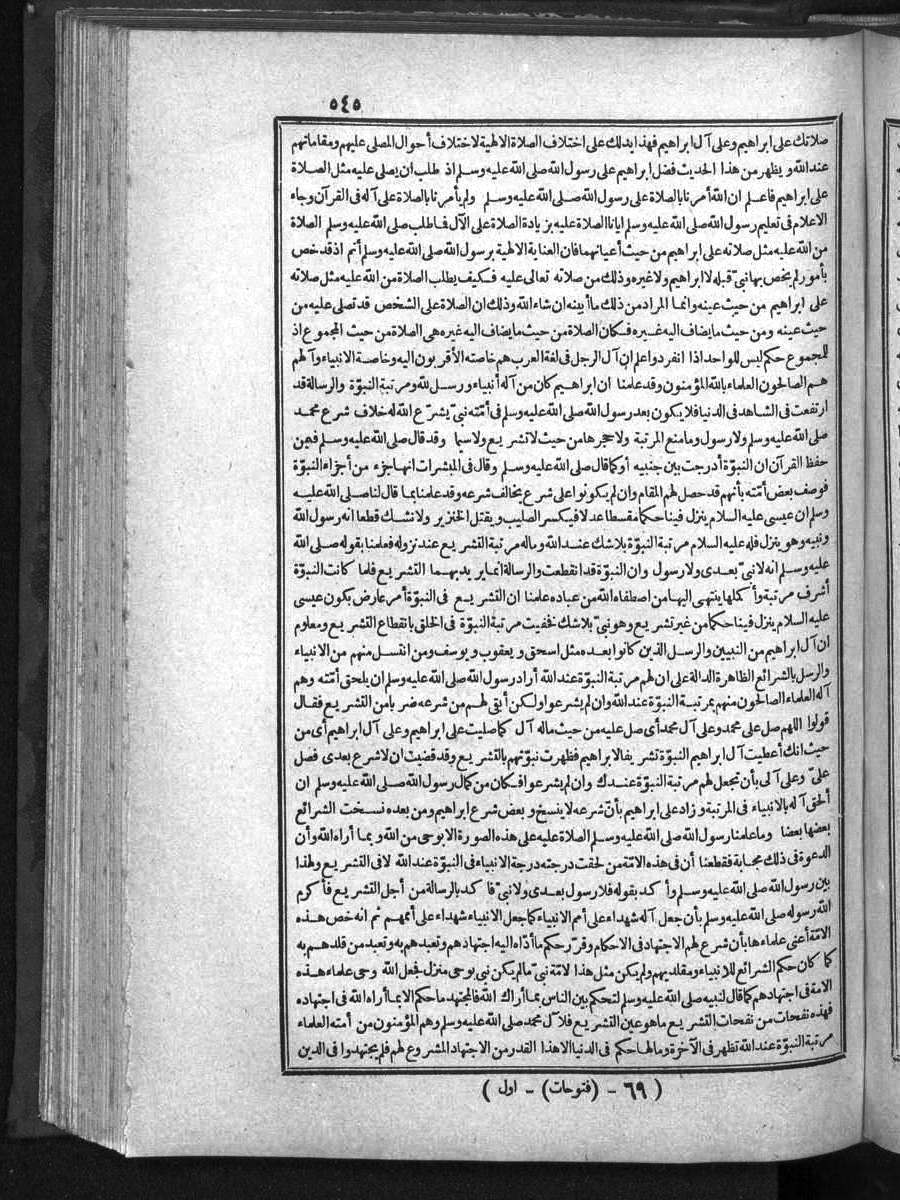 ٥٤٥
صلاتك على ابراهيم وعلى آل ابراهيم فهذا يدلك على اختلاف الصلاة الالهية لاختلاف أحوال المصلى عليهم ومقاماتهم
عند الله ويظهر من هذا الحديث فضل ابراهيم على رسول الله صلى الله عليه وسلم اذ طلب ان يصلى عليه مثل الصلاة
على ابراهيم فاعلم ان الله أمرنا بالصلاة على رسول الله صلى الله عليه وسلم ولم يأمرنا بالصلاة على آله فى القرآن وجاء
الاعلام فى تعليم رسول الله صلى الله عليه وسلم ايانا الصلاة عليه بزيادة الصلاة على الآل فاطلب صلى الله عليه وسلم الصلاة
من الله عليه مثل صلاته على ابراهيم من حيث أعيانهما فان العناية الالهية برسول الله صلى الله عليه وسلم أتم اذ قد خص
بأمور لم يخص بها نبىّ قبله لا ابراهيم ولا غيره وذلك من صلاته تعالى عليه فكيف يطلب الصلاة من الله عليه مثل صلاته
على ابراهيم من حيث عينه وانما المراد من ذلك ما أبينه ان شاء الله وذلك ان الصلاة على الشخص قد تصلى عليه من
حيث عينه ومن حيث ما يضاف اليه غيره فكان الصلاة من حيث ما يضاف اليه غيره هى الصلاة من حيث المجموع اذ
للمجموع حكم ليس للواحد اذا انفرد واعلم ان آل الرجل فى لغة العرب هم خاصته الأقربون اليه وخاصة الانبياء وآلهم
هم الصالحون العلماء بالله المؤمنون وقد علمنا ان ابراهيم كان من آله أنبياء ورسل لله ومرتبة النبوّة والرسالة قد
ارتفعت فى الشاهد فى الدنيا فلا يكون بعد رسول الله صلى الله عليه وسلم فى أمّته نبىّ يشرّع الله له خلاف شرع محمد
صلى الله عليه وسلم ولا رسول وما منع المرتبة ولا حجرها من حيث لا تشريع ولا سيما وقد قال صلى الله عليه وسلم فيمن
حفظ القرآن ان النبوّة أدرجت بين جنبيه أو كما قال صلى الله عليه وسلم وقال فى المبشرات انها جزء من أجزاء النبوّة
فوصف بعض أمّته بأنهم قد حصل لهم المقام وان لم يكونوا على شرع يخالف شرعه وقد علمنا بما قال لنا صلى الله عليه
وسلم ان عيسى عليه السلام ينزل فينا حكما مقسطا عدلا فيكسر الصليب ويقتل الخنزير ولا نشك قطعا انه رسول الله
ونبيه وهو ينزل فله عليه السلام مرتبة النبوّة بلا شك عند الله وماله مرتبة التشريع عند نزوله فعلمنا بقوله صلى الله
عليه وسلم انه لا نبىّ بعدى ولا رسول وان النبوّة قد انقطعت والرسالة انما يريد بهما التشريع فلما كانت النبوّة
أشرف مرتبة وأكملها ينتهى اليها من اصطفاه الله من عباده علمنا ان التشريع فى النبوّة أمر عارض بكون عيسى
عليه السلام ينزل فينا حكما من غير تشريع وهو نبىّ بلا شك فخفيت مرتبة النبوّة فى الخلق بانقطاع التشريع ومعلوم
ان آل ابراهيم من النبيين والرسل الذين كانوا بعده مثل اسحق ويعقوب ويوسف ومن انتسل منهم من الانبياء
والرسل بالشرائع الظاهرة الدالة على ان لهم مرتبة النبوّة عند الله أراد رسول الله صلى الله عليه وسلم ان يلحق أمّته وهم
آله العلماء الصالحون منهم بمرتبة النبوّة عند الله وان لم يشرعوا ولكن أبقى لهم من شرعه ضربا من التشريع فقال
قولوا اللهم صل على محمد وعلى آل محمد أى صل عليه من حيث ماله آل كما صليت على ابراهيم وعلى آل ابراهيم أى من
حيث انك أعطيت آل ابراهيم النبوّة تشريفا لابراهيم فظهرت نبوّتهم بالتشريع وقد قضيت ان لا شرع بعدى فصل
علىّ وعلى آلى بأن تجعل لهم مرتبة النبوّة عندك وان لم يشرعوا فكان من كمال رسول الله صلى الله عليه وسلم ان
ألحق آله بالانبياء فى المرتبة وزاد على ابراهيم بأنّ شرعه لا ينسخ وبعض شرع ابراهيم ومن بعده نسخت الشرائع
بعضها بعضا وما علمنا رسول الله صلى الله عليه وسلم الصلاة عليه على هذه الصورة الا بوحى من الله وبما أراه الله وأن
الدعوة فى ذلك مجابة فقطعنا أن فى هذه الامّة من لحقت درجته درجة الانبياء فى النبوّة عند الله لا فى التشريع ولهذا
بين رسول الله صلى الله عليه وسلم وأكد بقوله فلا رسول بعدى ولا نبىّ فأكد بالرسالة من أجل التشريع فأكرم
الله رسوله صلى الله عليه وسلم بأن جعل آله شهداء على أمم الانبياء كما جعل الانبياء شهداء على أممهم ثم انه خص هذه
الامّة أعنى علماءها بأن شرع لهم الاجتهاد فى الاحكام وقرّر حكم ما أدّاه اليه اجتهادهم وتعبدهم به وتعبد من قلدهم به
كما كان حكم الشرائع للانبياء ومقلديهم ولم يكن مثل هذا لامّة نبىّ مالم يكن نبى بوحى منزل فجعل الله وحى علماء هذه
الامة فى اجتهادهم كما قال لنبيه صلى الله عليه وسلم لتحكم بين الناس بما أراك الله فالمجتهد ما حكم الا بما أراه الله فى اجتهاده
فهذه نفحات من نفحات التشريع ما هو عين التشريع فلآل محمد صلى الله عليه وسلم وهم المؤمنون من أمته العلماء
مرتبة النبوّة عند الله تظهر فى الآخرة ومالها حكم فى الدنيا الا هذا القدر من الاجتهاد المشروع لهم فلم يجتهدوا فى الدين
( ٦٩ - (فتوحات) - اول )